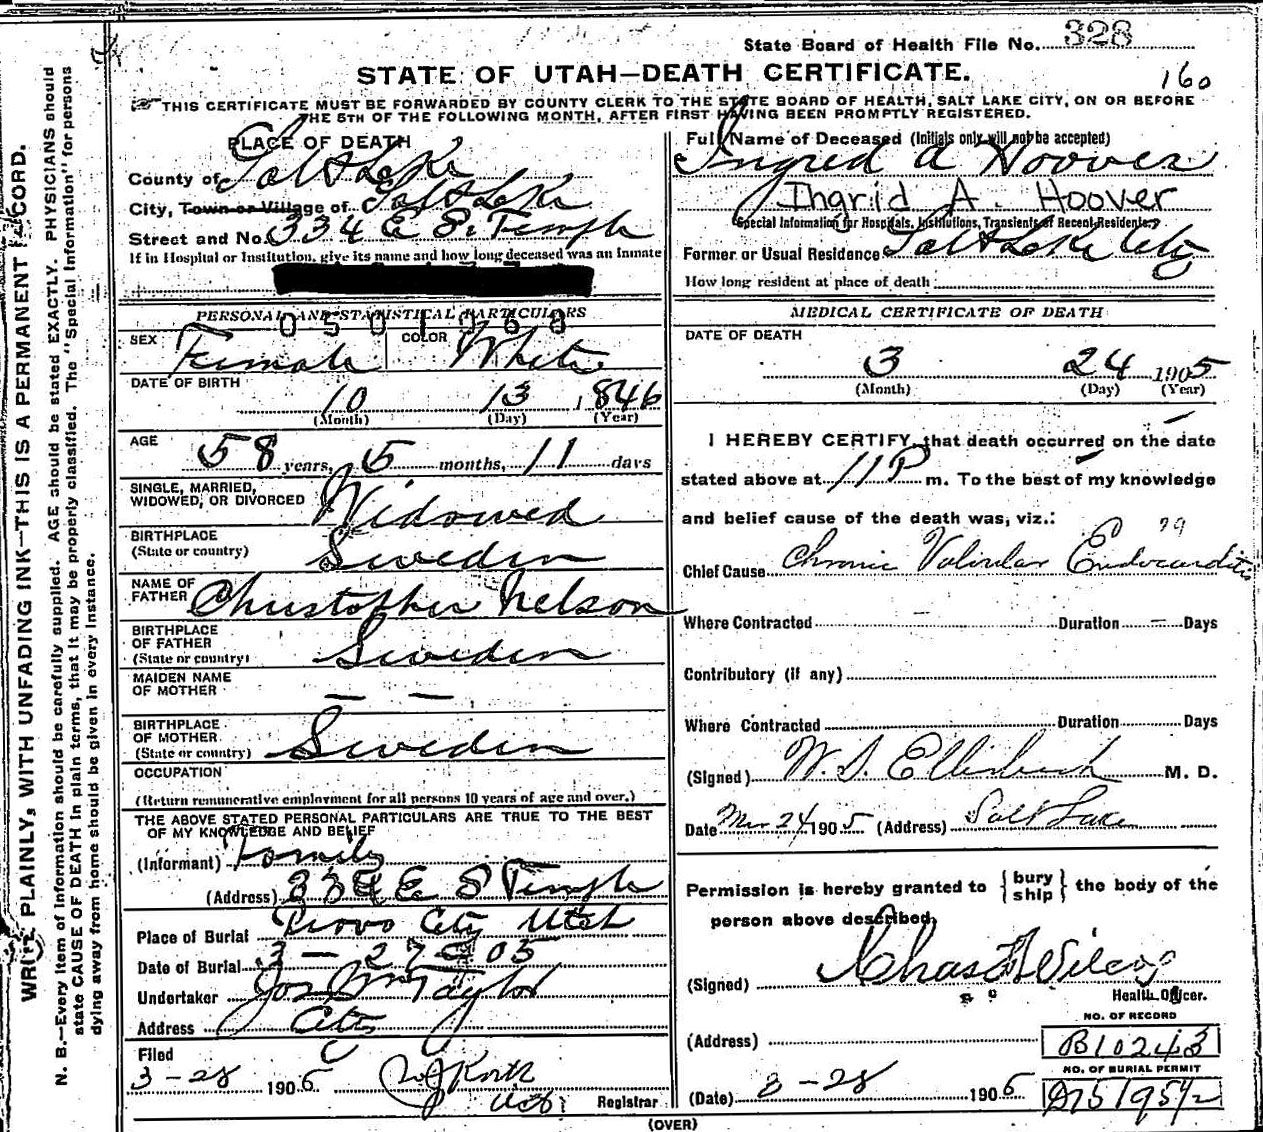 State Board of Health File No. 328
STATE OF UTAH—DEATH CERTIFICATE.
160
THIS CERTIFICATE MUST BE FORWARDED BY COUNTY CLERK TO THE STATE BOARD OF HEALTH, SALT LAKE CITY, ON OR BEFORE
THE 5TH OF THE FOLLOWING MONTH, AFTER FIRST HAVING BEEN PROMPTLY REGISTERED.
PLACE OF DEATH
County of Salt Lake
City, Town or Village of Salt Lake
Street and No. 334 E So Temple
If in Hospital or Institution, give its name and how long deceased was an inmate
PERSONAL AND STATISTICAL PARTICULARS
0501368
SEX Female COLOR White
DATE OF BIRTH
10 13 1846
(Month) (Day) (Year)
AGE
58 years, 5 months, 11 days
SINGLE, MARRIED,
WIDOWED, OR DIVORCED Widowed
BIRTHPLACE
(State or country) Sweden
NAME OF
FATHER Christopher Nelson
BIRTHPLACE
OF FATHER
(State or country) Sweden
MAIDEN NAME
OF MOTHER — —
BIRTHPLACE
OF MOTHER
(State or country) Sweden
OCCUPATION
(Return remunerative employment for all persons 10 years of age and over.)
THE ABOVE STATED PERSONAL PARTICULARS ARE TRUE TO THE BEST
OF MY KNOWLEDGE AND BELIEF
(Informant) Family
(Address) 334 E S Temple
Place of Burial Provo City Utah
Date of Burial 3 – 27 – 05
Undertaker Jos Wm Taylor
Address City
Filed
3-28 1905
Registrar
Full Name of Deceased (Initials only will not be accepted)
Ingred A Hoover
Ingrid A. Hoover
Special Information for Hospitals, Institutions, Transients of Recent Residents.
Former or Usual Residence Salt Lake City
How long resident at place of death
MEDICAL CERTIFICATE OF DEATH
DATE OF DEATH
3 24 1905
(Month) (Day) (Year)
I HEREBY CERTIFY, that death occurred on the date
stated above at 11 P m. To the best of my knowledge
and belief cause of the death was, viz.:
79
Chief Cause Chronic Valvular Endocarditis
Where Contracted – Duration – Days
Contributory (if any)
Where Contracted Duration Days
(Signed) W. S. Ellerbeck M. D.
Date Mar 24 1905 (Address) Salt Lake
Permission is hereby granted to { bury ship } the body of the
person above described.
(Signed)
Health Officer.
NO. OF RECORD
(Address) B10243
NO. OF BURIAL PERMIT
(Date) 3-28 1905
(OVER)
WRITE PLAINLY, WITH UNFADING INK—THIS IS A PERMANENT RECORD.
N. B.—Every item of information should be carefully supplied. AGE should be stated EXACTLY. PHYSICIANS should
state CAUSE OF DEATH in plain terms, that it may be properly classified. The "Special Information" for persons
dying away from home should be given in every instance.